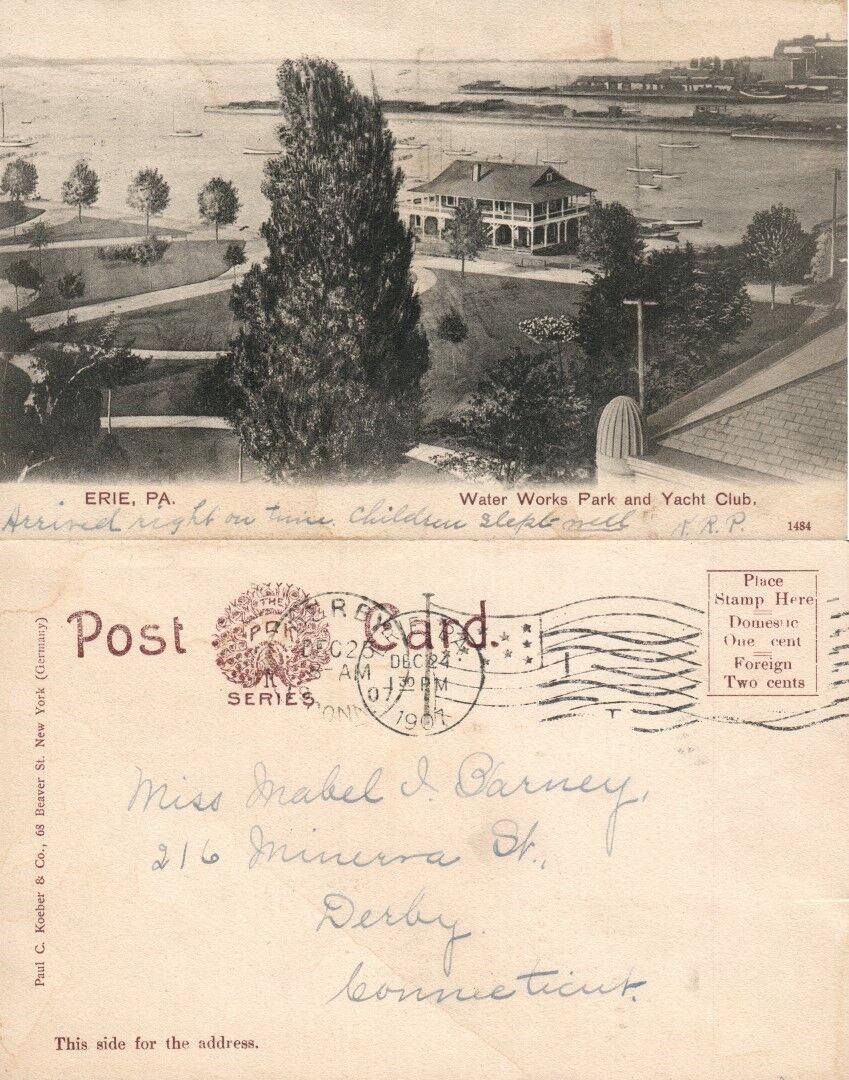 ERIE, PA.
Water Works Park and Yacht Club.
Arrived right on time. Children slept well N.R.P.
1484
Post Card.
THE
PCK
SERIES
DEC 26
AM
07
CONN
DEC 24
1 30 PM
1907
Place
Stamp Here
Domestic
One cent
Foreign
Two cents
Paul C. Koeber & Co., 68 Beaver St. New York (Germany)
Miss Mabel I. Barney,
216 Minerva St.,
Derby.
Connecticut.
This side for the address.